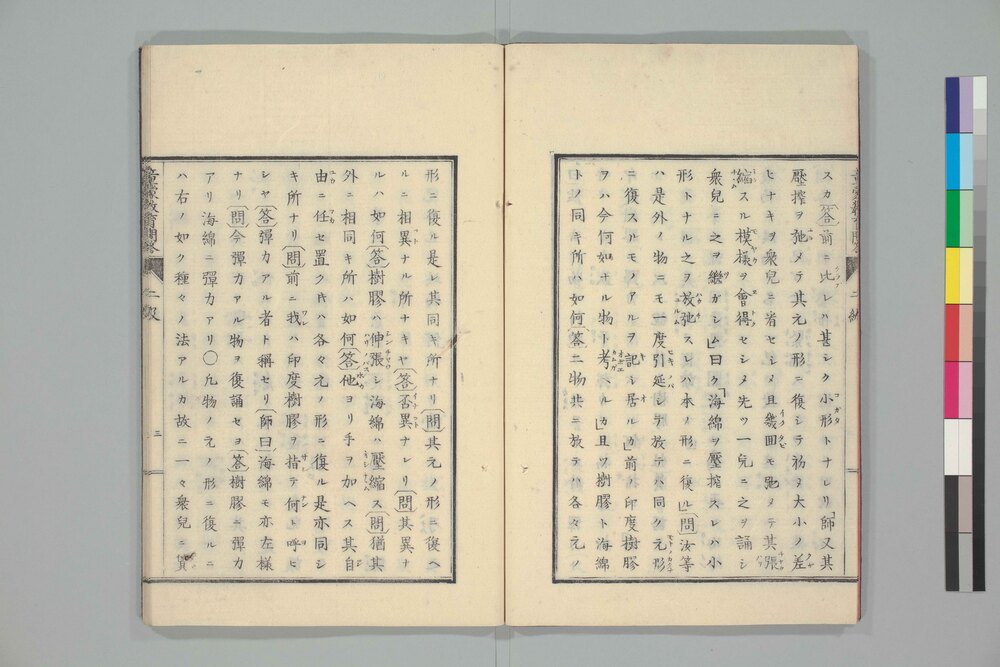 スカ答前ニ比レハ甚シク小形トナレリ「師又其
壓搾ヲ弛メテ其元ノ形ニ復シテ初ヲ大小ノ差
ヒナキヲ衆兒ニ省セシメ且幾囬モ弛メテ其張
縮スル模樣ヲ會得セシメ先ツ一兒ニ之ヲ誦シ
衆兒ニ之ヲ繼ガシム」曰ク「海綿ヲ壓搾スレハ小
形トナル之ヲ放弛スレハ本ノ形ニ復ル」問汝等
ハ是外ノ物ニモ一度引延シテ放テハ同ク元形
ニ復スルモノアルヲ記シ居ルカ前ノ印度樹膠
ヲハ今何如ナル物ト考ヘルカ且ツ樹膠ト海綿
トノ同キ所ハ如何答二物共ニ放テハ各々元ノ
形ニ復ル是レ其同キ所ナリ問其元ノ形ニ復ヘ
ルニ相異ナル所ナキヤ答否異ナレリ問其異ナ
ルハ如何答樹膠ハ伸張シ海綿ハ壓縮ス問猶其
外ニ相同キ所ハ如何答他ヨリ手ヲ加ヘス其自
由ニ任セ置ク𪜈ハ各々元ノ形ニ復ル是亦同シ
キ所ナリ問前ニ我ハ印度樹膠ヲ指テ何ト呼ヒ
シヤ答彈力アル者ト稱セリ師曰海綿モ亦左樣
ナリ問今彈力アル物ヲ復誦セヨ答樹膠ニ彈力
アリ海綿ニ彈力アリ〇凡物ノ元ノ形ニ復ルニ
ハ右ノ如ク種々ノ法アルカ故ニ一々衆兒ニ質
二級
三